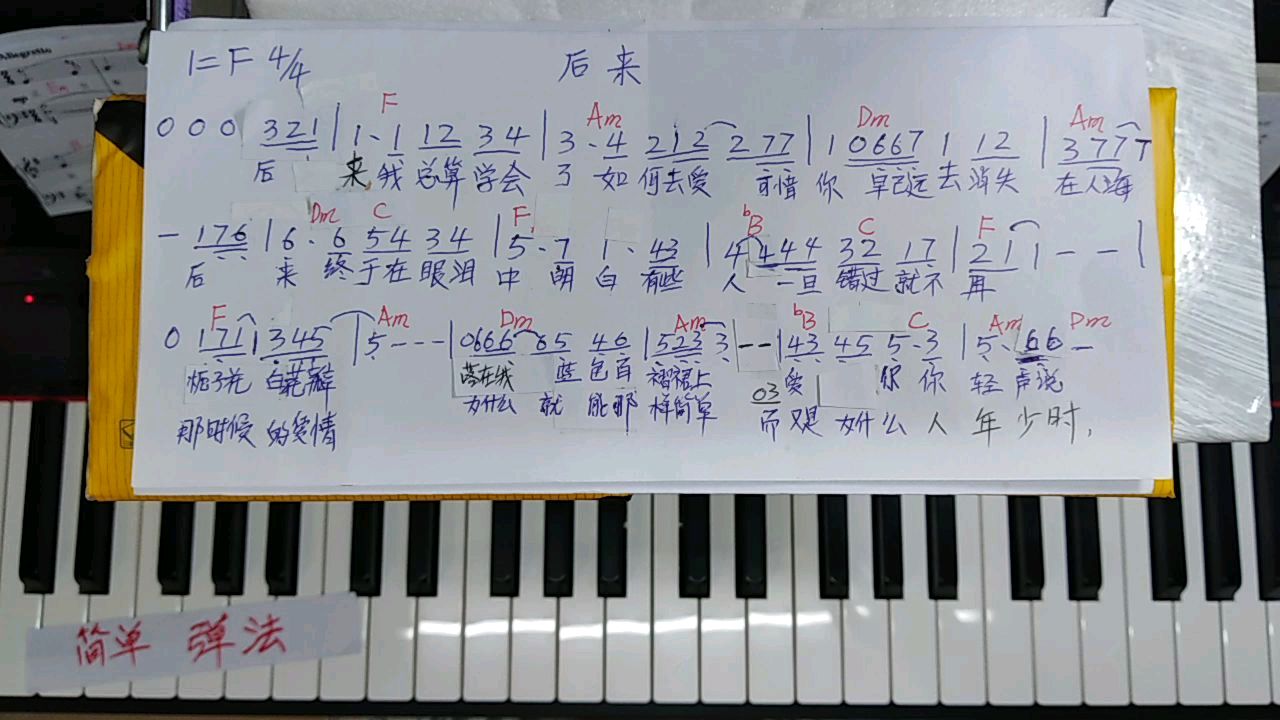 Allegretto
1=F 4/4 后来
F Am Dm Am
0 0 0 321 | 1· 1 12 34 | 3· 4 212 277 | 1 0667 1 12 | 3777
后 来 我 总算 学会 了 如 何去爱 可惜 你 早已远 去 消失 在人海
Dm C F bB C F
- 176 | 6· 6 54 34 | 5· 7 1· 43 | 4 444 32 17 | 211 - - |
后 来 终于在 眼泪 中 明 白 有些 人 一旦 错过 就不 再
F Am Dm Am bB C Am Dm
0 171 | 345 | 5 - - - | 0666 65 46 | 523 3 | - - | 43 45 5·3 | 5· 66 -
栀子花 白花瓣 落在我 蓝色百 褶裙上 爱 你 你 轻 声说
那时候 的爱情 为什么 就 能那 样简单 03 而又是 为什么 人 年 少时,
简单 弹法